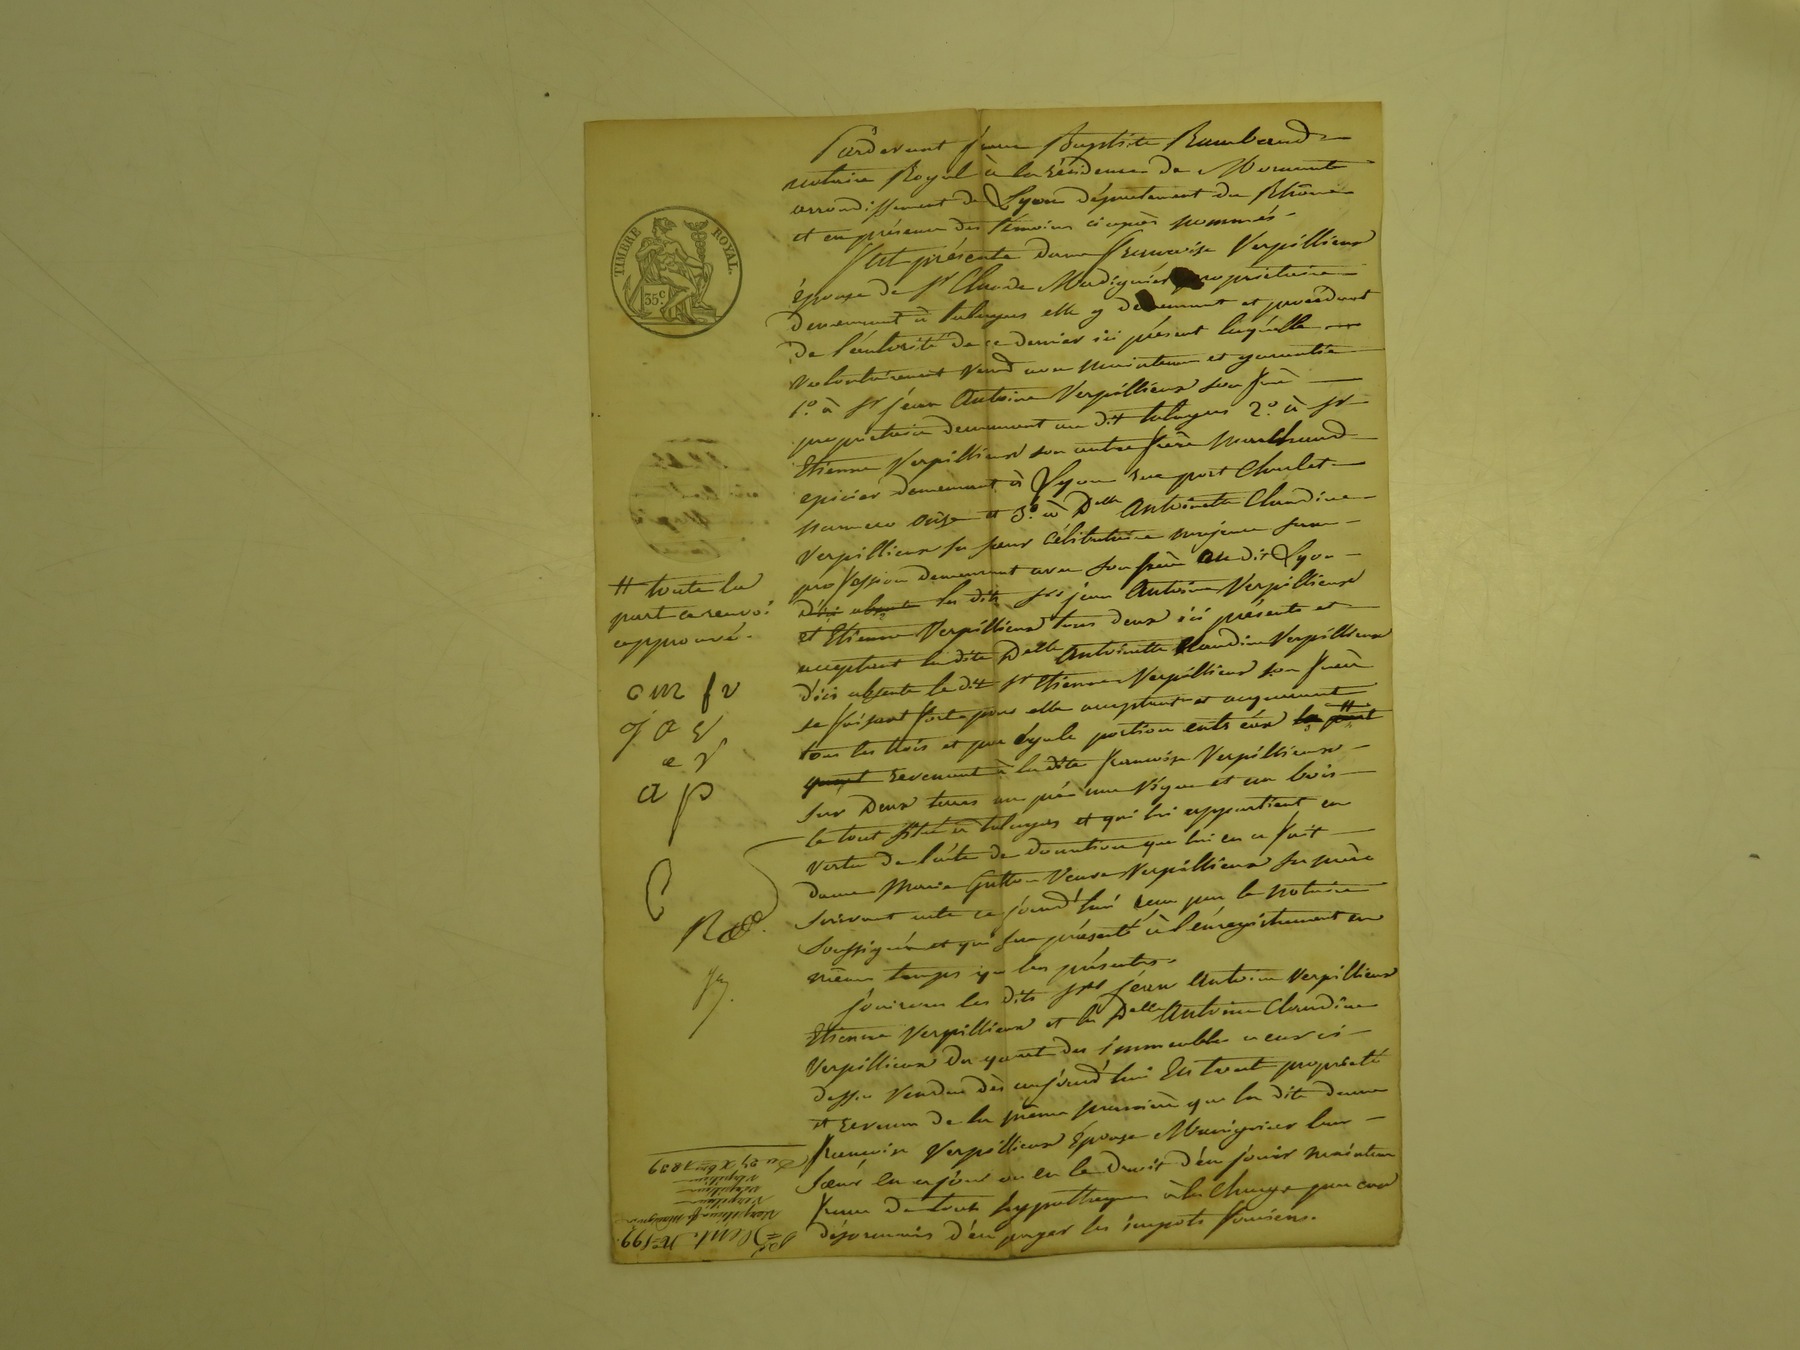 Pardevant Jean Baptiste Rambaud
notaire Royal à la résidence de Mornant
arrondissement de Lyon département du Rhône
et en présence des témoins ci après nommés.
Est présente dame Françoise Verpillieux
épouse de Sr Claude Madignier propriétaire
demeurant à taluyers elle y demeurant et procédant
de l'autorité de ce dernier ici présent laquelle
volontairement vend avec maintenue et garantie
1.° à Sr jean Antoine Verpillieux son frère
propriétaire demeurant au dit taluyers 2.° à Sr
Etienne Verpillieux son autre frère marchand
epicier demeurant à Lyon rue port Charlet
numero onze et 3.° à Delle Antoinette Claudine
Verpillieux sa sœur célibataire majeure sans
profession demeurant avec son frère au dit Lyon
d'ici absente les dits Srs jean Antoine Verpillieux
et Etienne Verpillieux tous deux ici présents et
acceptant la dite Delle Antoinette Claudine Verpillieux
d'ici absente le dit Sr Etienne Verpillieux son frère
se faisant fort pour elle acceptant et acquerant
tous les trois et par égale portion entr'eux la part #
quart revenant à la dite françoise Verpillieux
sur deux terres un pré une vigne et un bois
le tout situé à taluyers et qui lui appartient en
vertu de l'acte de donation que lui en a fait
dame Marie Veuve Verpillieux sa mère
suivant acte ce jourd'hui reçu par le notaire
soussigné et qui sera présenté à l'énregistrement en
même temps que les présentes.
Jouiront les dits Srs jean Antoine Verpillieux
Etienne Verpillieux et la Delle Antoine Claudine
Verpillieux du quart des immeubles à eux ci
dessus vendus dès aujourd'hui En toute propriété
et revenu de la même manière que la dite dame
françoise Verpillieux épouse Madignier leur
sœur en a joui ou eu le droit d'en jouir maintenu
franc de toute hypothèque à la charge par eux
désormais d'en payer les impots fonciers.
TIMBRE ROYAL.
35.c
# toute la
part ce renvoi
approuvé.
c m f v
j a v
e v
a p
Du 27 Xbre 1839
Verpillieux
Verpillieux
Verpillieux fe Madignier
Vent. No 199.